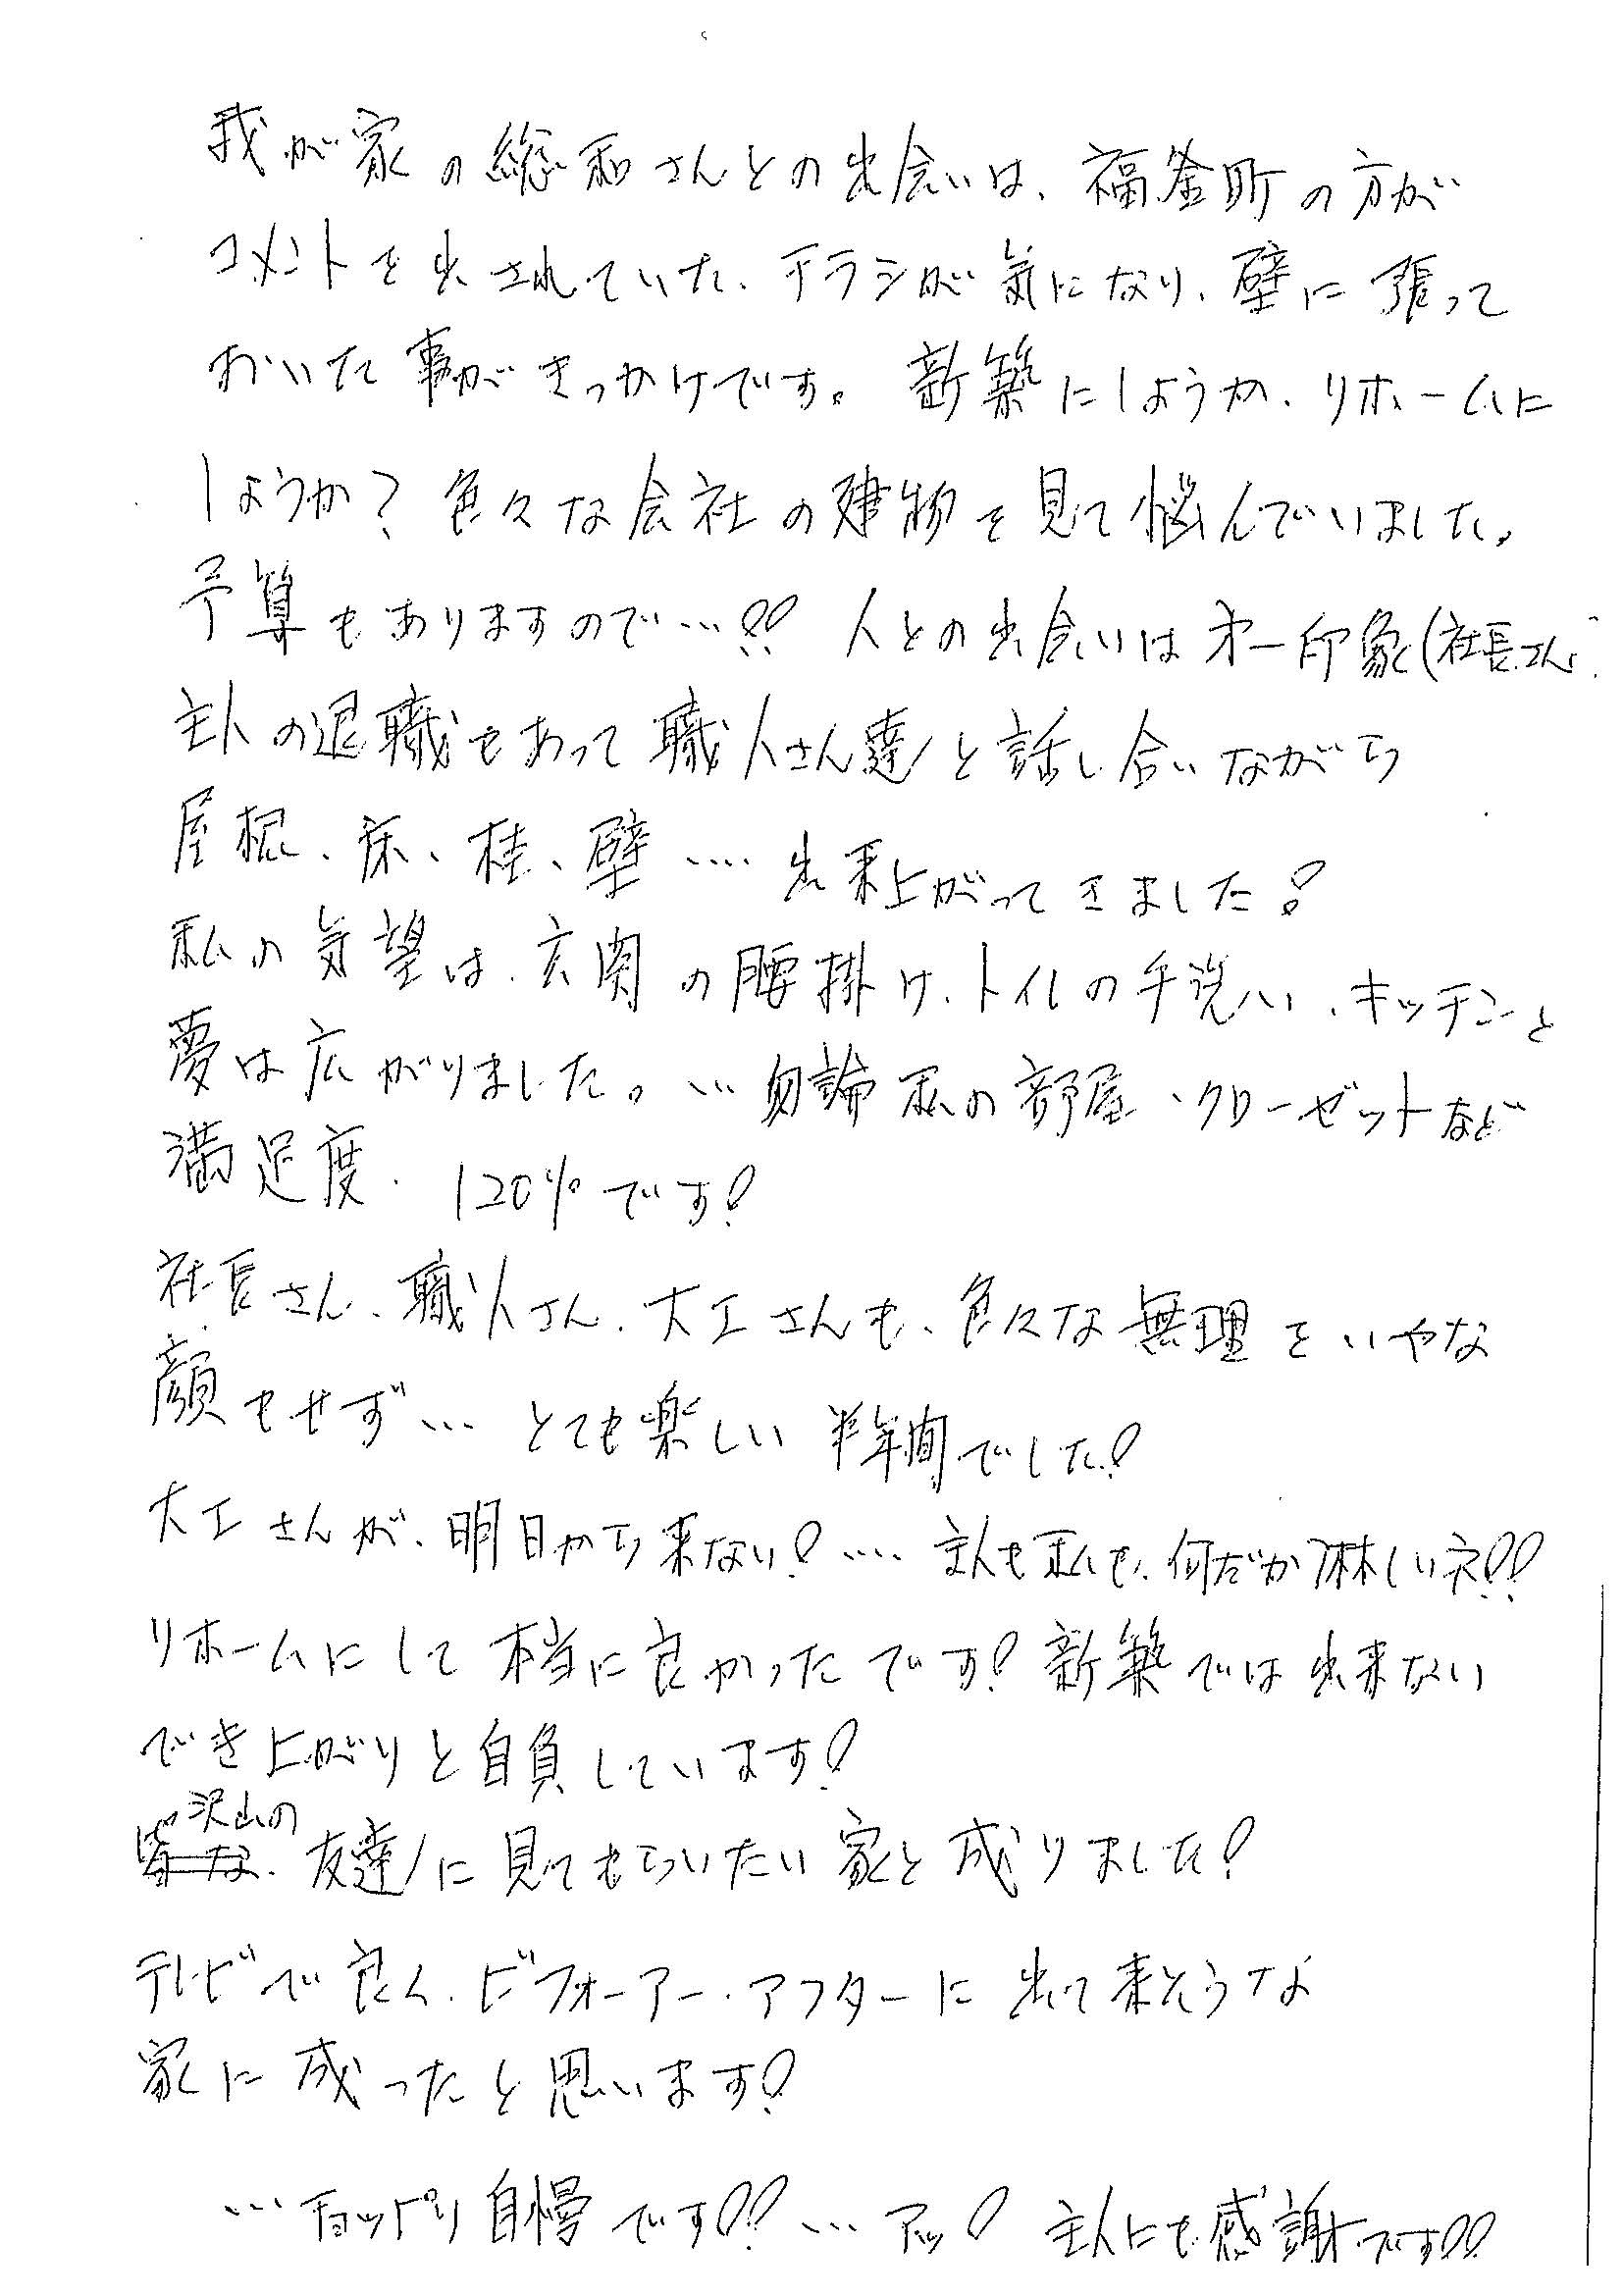 我が家の総和さんとの出会いは、福釜町の方が
コメントを出されていた、チラシが気になり、壁に張って
おいた事がきっかけです。新築にしようか、リホームに
しようか？色々な会社の建物を見て悩んでいました。
予算もありますので…!! 人との出会いは才一印象(社長さん)
主人の退職もあって職人さん達と話し合いながら
屋根、床、柱、壁‥‥出来上がってきました!
私の気望は、玄関の腰掛け、トイレの手洗い、キッチンと
夢は広がりました。…勿論私の部屋、クローゼットなど
満足度、120%です!
社長さん、職人さん、大工さんも、色々な無理をいやな
顔もせず…とても楽しい半年間でした!
大工さんが、明日から来ない!‥‥主人も私も、何だか淋しいネ!!
リホームにして本当に良かったです!新築では出来ない
でき上がりと自負しています!
沢山の友達に見てもらいたい家と成りました!
テレビで良く、ビフォーアー・アフターに出て来そうな
家に成ったと思います!
…チョッピリ自慢です!!…アッ! 主人にも感謝です!!